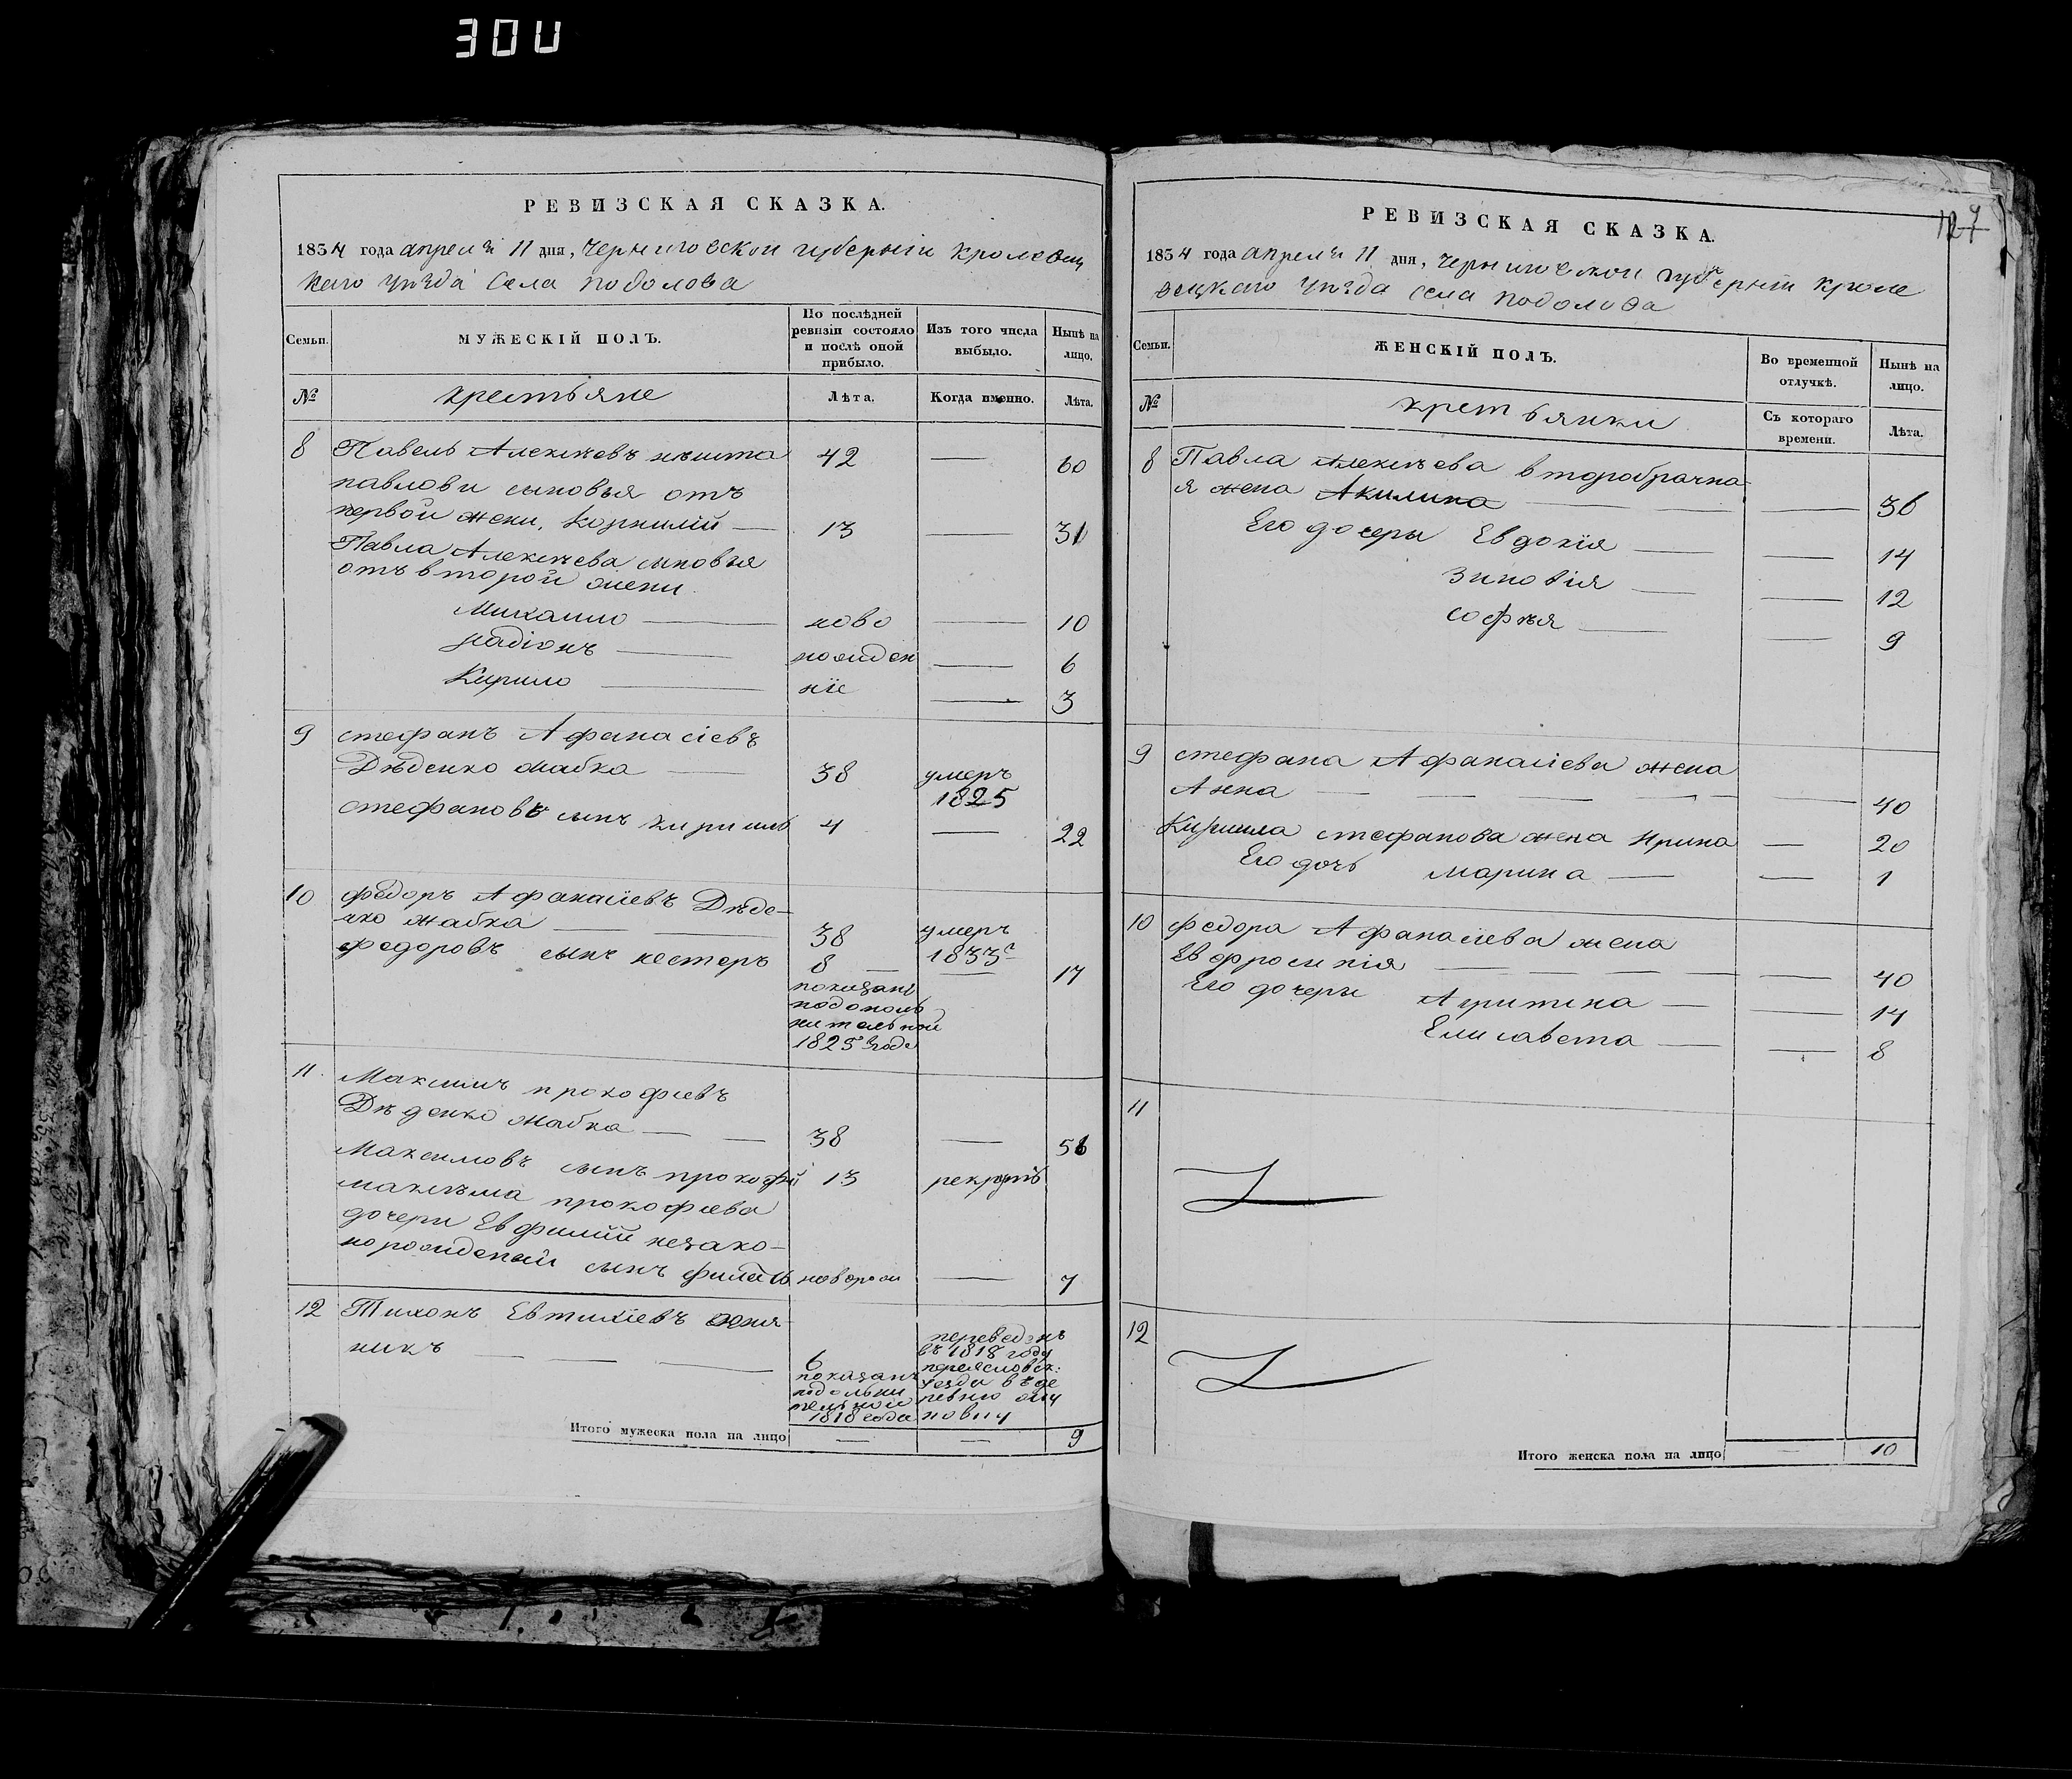 30U
РЕВИЗСКАЯ СКАЗКА.
1834 года апреля 11 дня, Черниговской губерніи Кролевец
каго уѣзда села подолова
Семьи.
МУЖЕСКІЙ ПОЛЪ.
По послѣдней ревизіи состояло и послѣ оной прибыло.
Изъ того числа выбыло.
Нынѣ на лицо.
№
крестьяне
Лѣта.
Когда именно.
Лѣта.
8 Павелъ Алексѣевъ 42 — 60
павлови сыновья отъ
первой жени, Корнилій — 13 — 31
Павла Алексѣева сыновья
отъ второй жени
Михаило — ново — 10
Радіонъ — рожден — 6
Кирило — ніе — 3
9 стефанъ Афанасіевъ
Дѣденко жабка — 38 умеръ
1825
стефановъ сынъ кирилъ 4 — 22
10 федоръ Афанасіевъ Дѣде-
нко жабка — — 38 умеръ
федоровъ сынъ нестеръ 8 — 1833г — 17
показанъ
подополь
нительной
1825 года
11. Максимъ прокофіевъ
Дѣденко жабка — — 38 — 56
Максимовъ сынъ прокофій 13 рекрутъ
максѣма прокофіева
дочери Евфиміи незако-
норожденый сынъ филатъ новорож — 7
12 Тихонъ Евтихіевъ
никъ — — — 6
показанъ
подольни
тельной
1818 года
переведенъ
въ 1818 году
переясловск:
уезда въ де
ревню
новку
Итого мужеска пола на лицо — — 9
127
РЕВИЗСКАЯ СКАЗКА.
1834 года апреля 11 дня, Черниговской губерніи Кроле
вецкаго уѣзда села подолова
Семьи.
ЖЕНСКІЙ ПОЛЪ.
Во временной отлучкѣ.
Нынѣ на лицо.
№
крестьянки
Съ котораго времени.
Лѣта.
8 Павла Алексѣева второбрачна-
я жена Акилина — — — 36
Его дочеры Евдокія — — 14
Зиновія — — 12
софѣя — — 9
9 стефана Афанасіева жена
Анна — — — — — 40
Кирила стефанова жена Ирина — 20
Его дочь марина — — 1
10 федора Афанасіева жена
Евфросинія — — — — — 40
Его дочеры Агрипина — — 14
Елисавета — — 8
11
12
Итого женска пола на лицо — 10